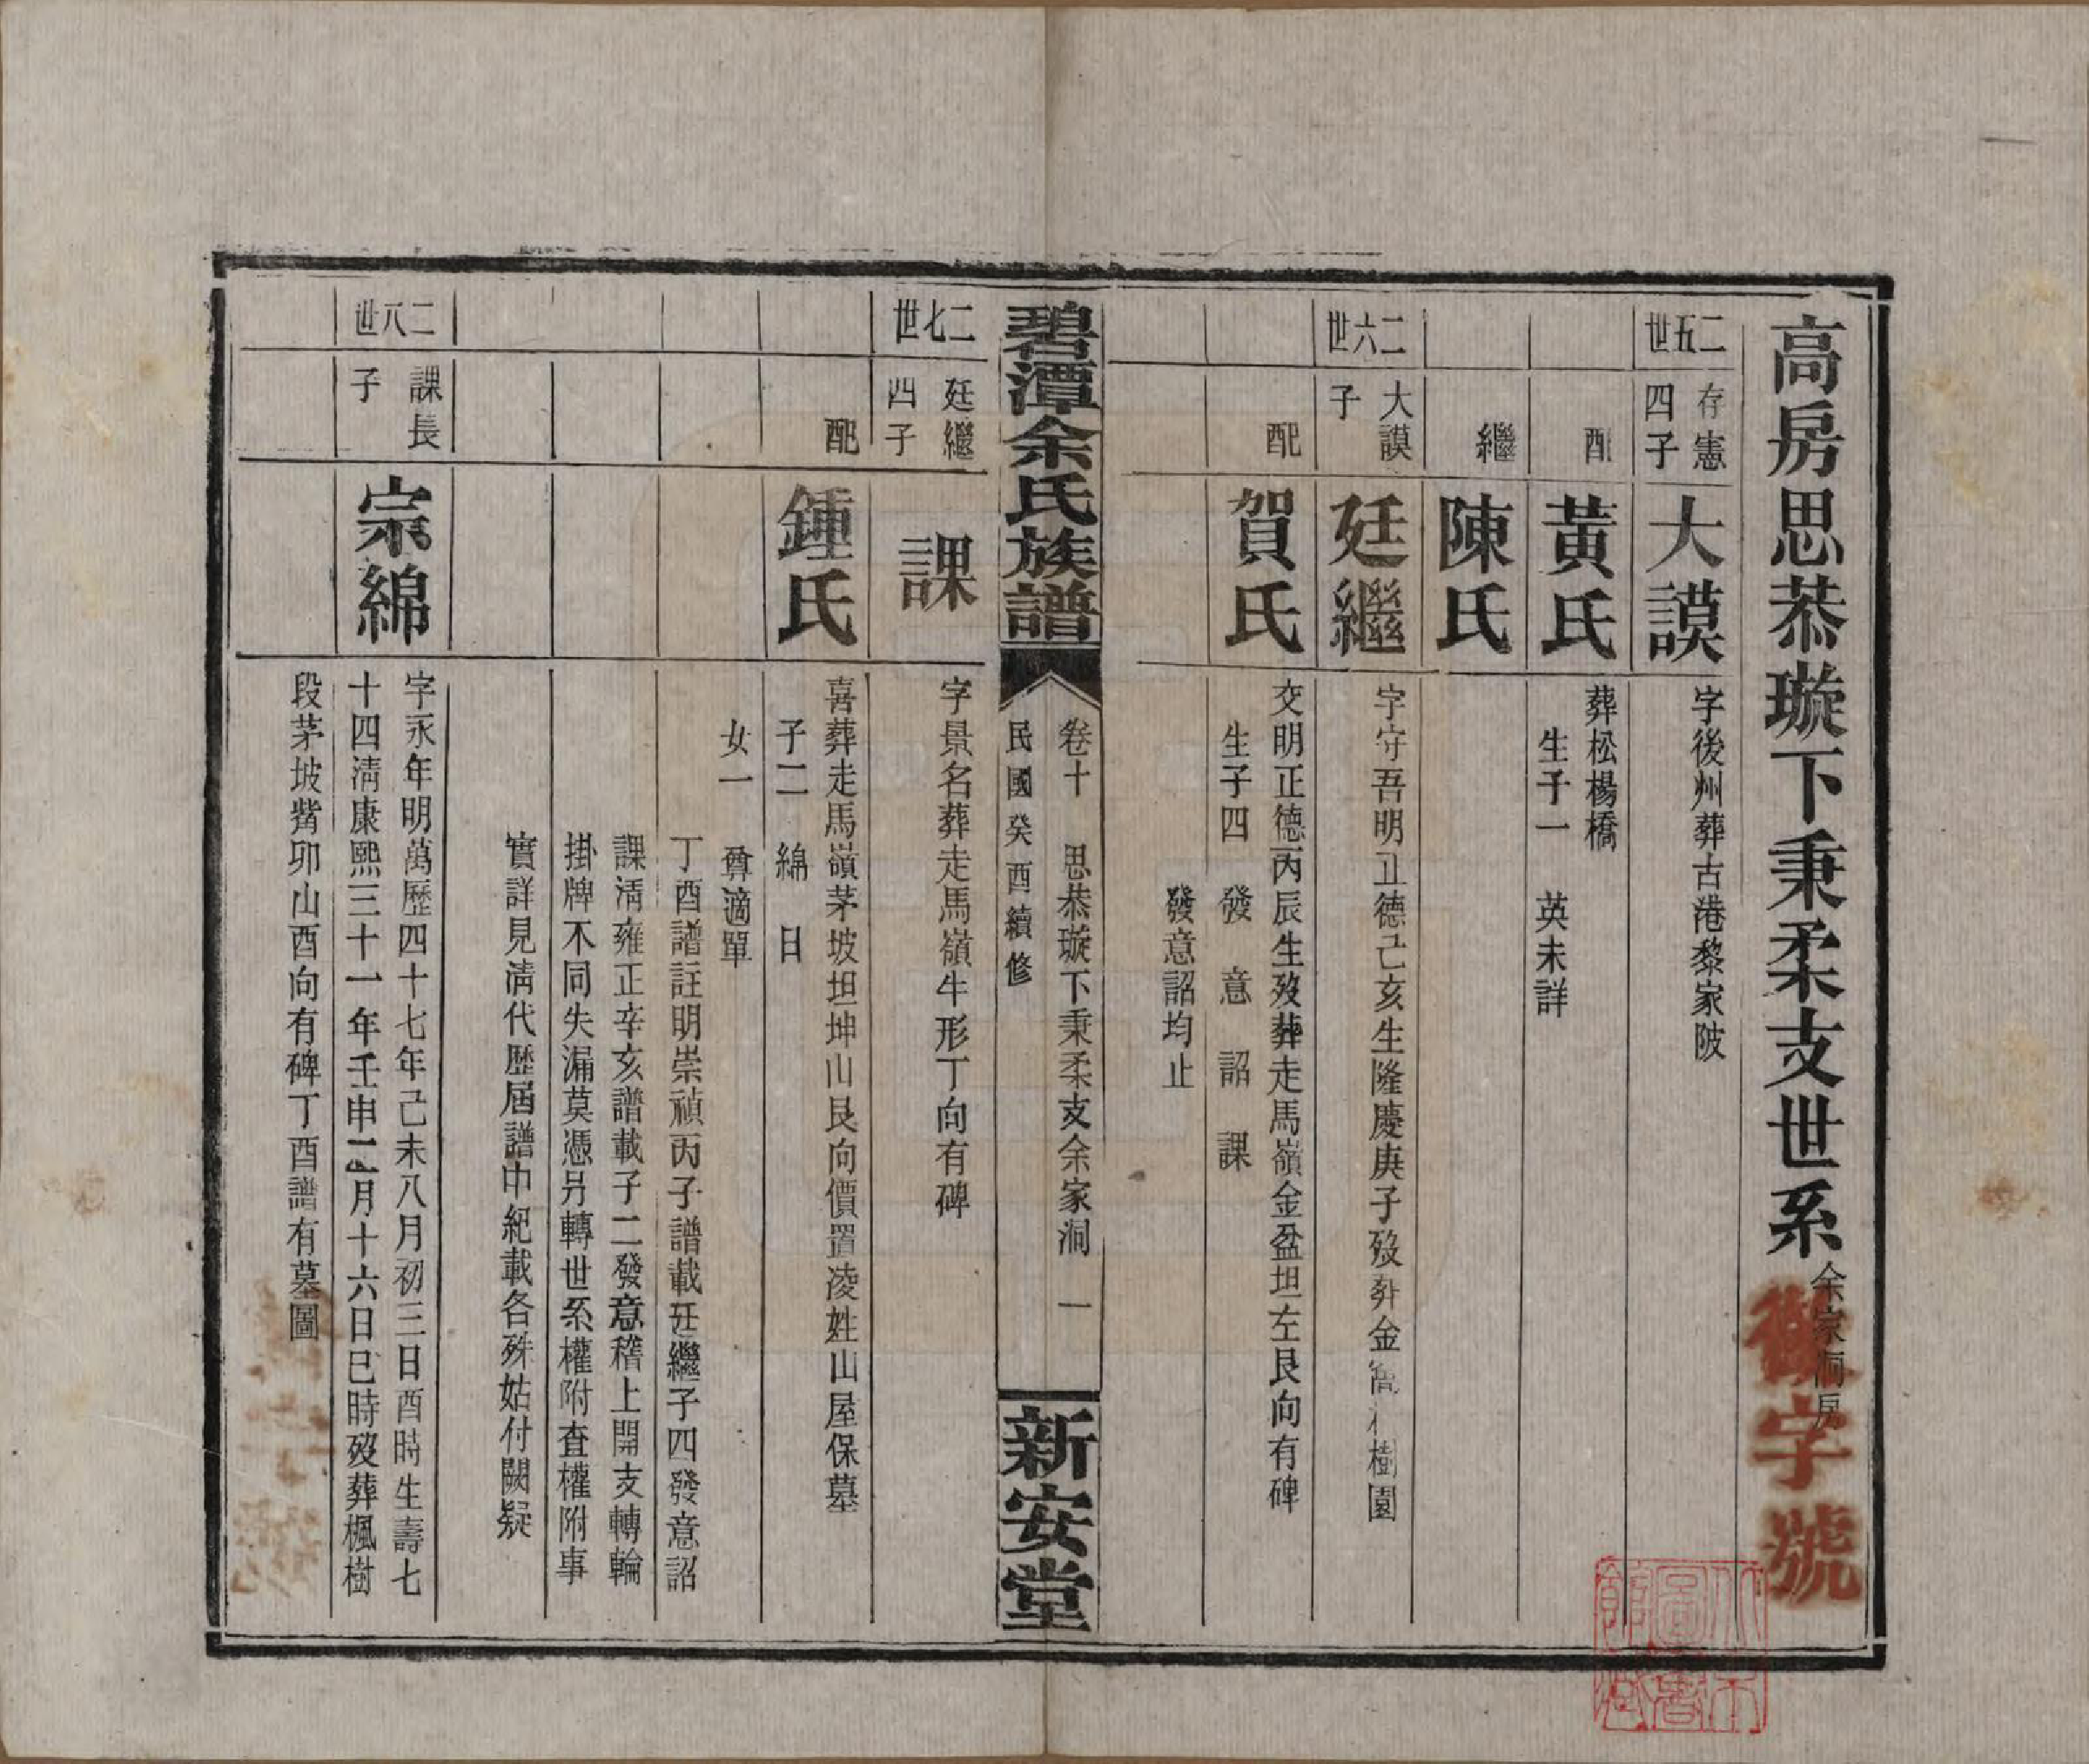 高房思恭璇下秉柔支世系余家洞房
字號
二五世
存憲四子
大謨
字後州葬古港黎家陂
配
黃氏
葬松楊橋
生子一 英未詳
繼
陳氏
二六世
大謨子
廷繼
字守吾明正德己亥生隆慶庚子歿葬金
樹園
配
賀氏
交明正德丙辰生歿葬走馬嶺金盆坦左艮向有碑
生子四 發 意 詔 課
發意詔均止
碧潭余氏族譜
卷十 思恭璇下秉柔支余家洞 一
民國癸酉續修
新安堂
二七世
廷繼四子
課
字景名葬走馬嶺牛形丁向有碑
配
鍾氏
喜葬走馬嶺茅坡坦坤山艮向價置凌姓山屋保墓
子二 綿 日
女一 尊適單
丁酉譜註明崇禎丙子譜載廷繼子四發意詔
課清雍正辛亥譜載子二發意稽上開支轉輪
掛牌不同失漏莫憑另轉世系權附查權附事
實詳見清代歷屆譜中紀載各殊姑付闕疑
二八世
課長子
宗綿
字永年明萬歷四十七年己未八月初三日酉時生壽七
十四清康熙三十一年壬申二月十六日巳時歿葬楓樹
段茅坡觜卯山酉向有碑丁酉譜有墓圖